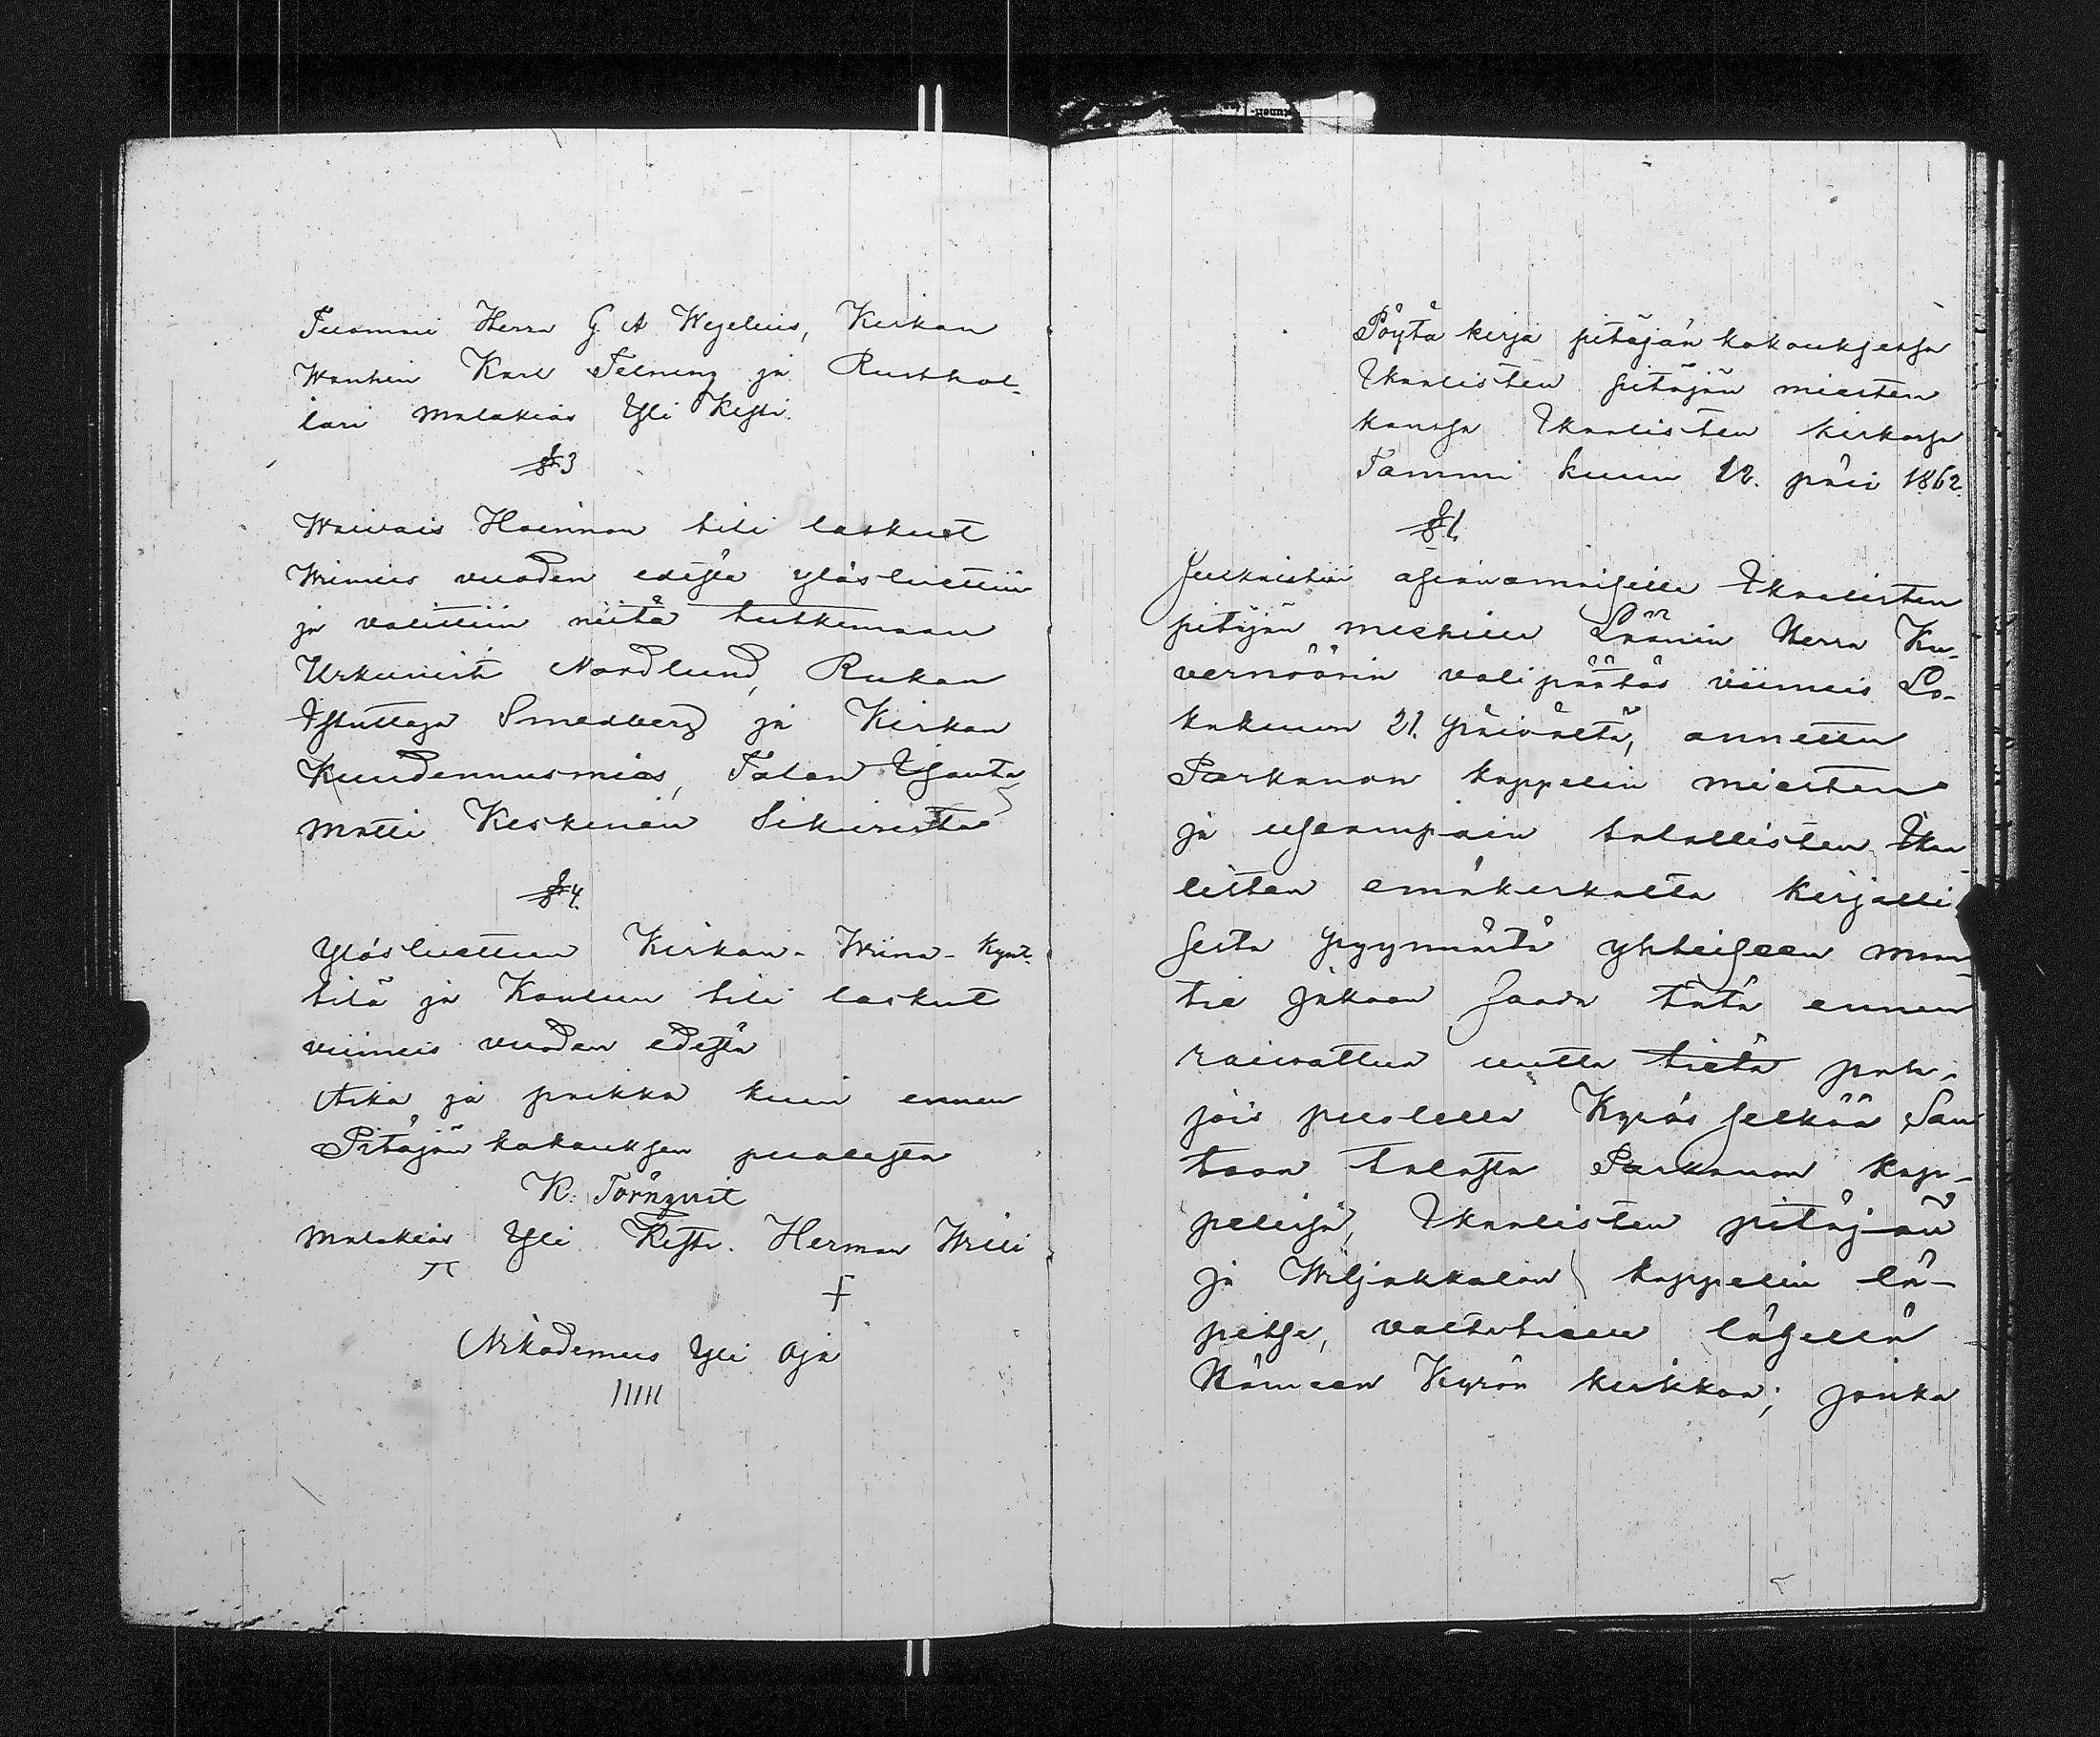 Tuomari Herra G. A Wegelius, Kirkon
Wanhin Karl Telning ja Rusthol-
lari Malakias Yli Kesti.
§ 3
Waivais Hoinnon tili laskut
Wiimeis vuoden edestä ylösluettiin
ja valittiin niitä tutkimaan
Urkunisti Nordlund, Rukan
Istuttaja Smedberg ja Kirkon
Kuudennusmies, Talon Isäntä
Matti Keskinen Sikurista
§ 4.
Ylösluettiin Kirkon- Wiina- Kynt-
tilä ja Koulun tili laskut
viimeis vuoden edestä
Aika ja paikka kuin ennen
Pitäjän kokouksen puolesta
K. Törnqvist
Malakias Yli Kesti. Herman Willi
Nikodemus Yli Oja
IIIII
Pöytä kirja pitäjän kokouksesa
Ikalisten pitäjän miesten
kansa Ikalisten kirkosa
Tammi kuun 12. päiv 1862.
§ 1.
Julkaistiin asianomaisille Ikalisten
pitäjän miehille Läänin Herra Ku-
vernöörin välipäätös viimeis Lo-
kakuun 21. päivältä, annettu
Parkanon kappelin miesten
ja useampain talollisten Ikaa-
listen emäkirkolta kirjalli-
sesta pyynnöstä yhteiseen maan-
tie jakoon saada tätä ennen
raivattua uutta tietä poh-
jois puolella Kyrös selkää San
toon talosta Parkanon kap-
pelisa, Ikalisten pitäjän
ja Wiljakkalan kappelin lä-
pitse, valtatielle läsellä
Hämeen Kyrön kirkkoa; jonka